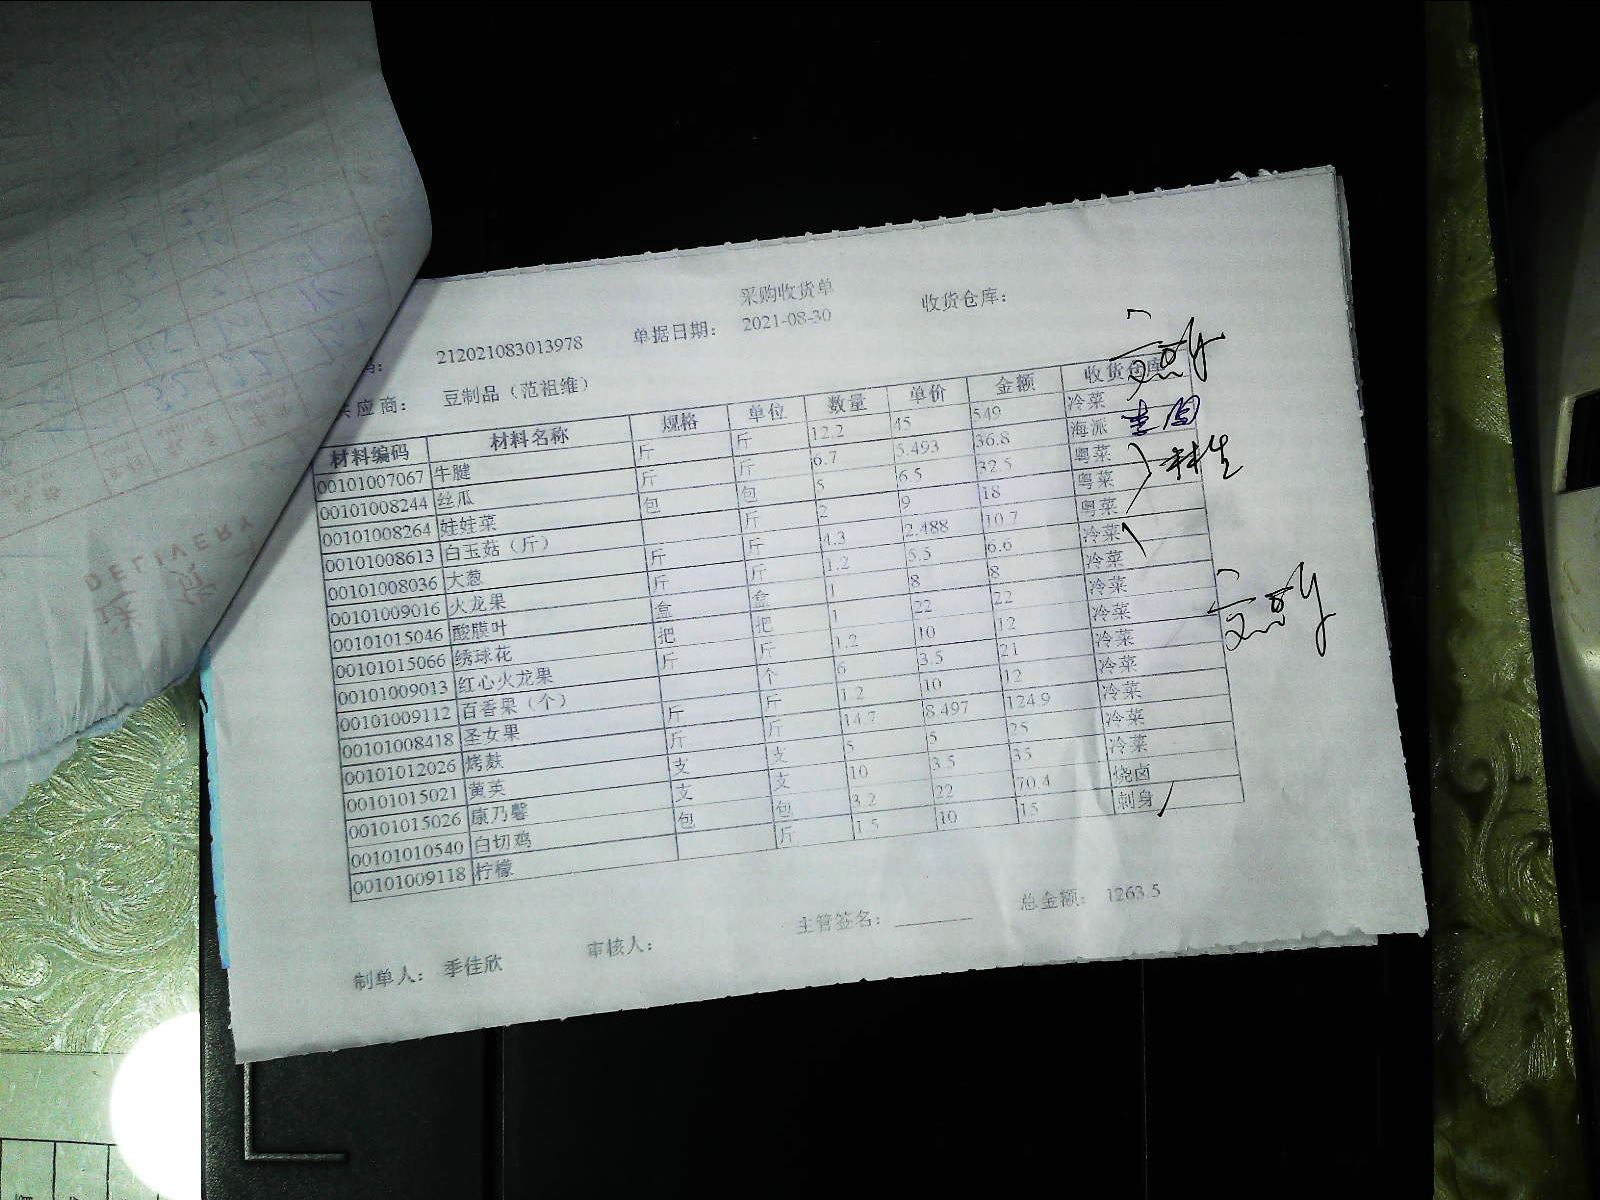 采购收货单
212021083013978 单据日期： 2021-08-30 收货仓库：
供应商： 豆制品（范祖维）
材料编码 材料名称 规格 单位 数量 单价 金额 收货仓库
00101007067 牛腱 斤 斤 12.2 45 549 冷菜
00101008244 丝瓜 斤 斤 6.7 5.493 36.8 海派
00101008264 娃娃菜 包 包 5 6.5 32.5 粤菜
00101008613 白玉菇（斤） 斤 2 9 18 粤菜
00101008036 大葱 斤 斤 4.3 2.488 10.7 粤菜
00101009016 火龙果 斤 斤 1.2 5.5 6.6 冷菜
00101015046 酸膜叶 盒 盒 1 8 8 冷菜
00101015066 绣球花 把 把 1 22 22 冷菜
00101009013 红心火龙果 斤 斤 1.2 10 12 冷菜
00101009112 百香果（个） 个 6 3.5 21 冷菜
00101008418 圣女果 斤 斤 1.2 10 12 冷菜
00101012026 烤麸 斤 斤 14.7 8.497 124.9 冷菜
00101015021 黄英 支 支 5 5 25 冷菜
00101015026 康乃馨 支 支 10 3.5 35 冷菜
00101010540 白切鸡 包 包 3.2 22 70.4 烧卤
00101009118 柠檬 斤 1.5 10 15 刺身
制单人： 季佳欣 审核人： 主管签名： 总金额： 1263.5
DELIVERY